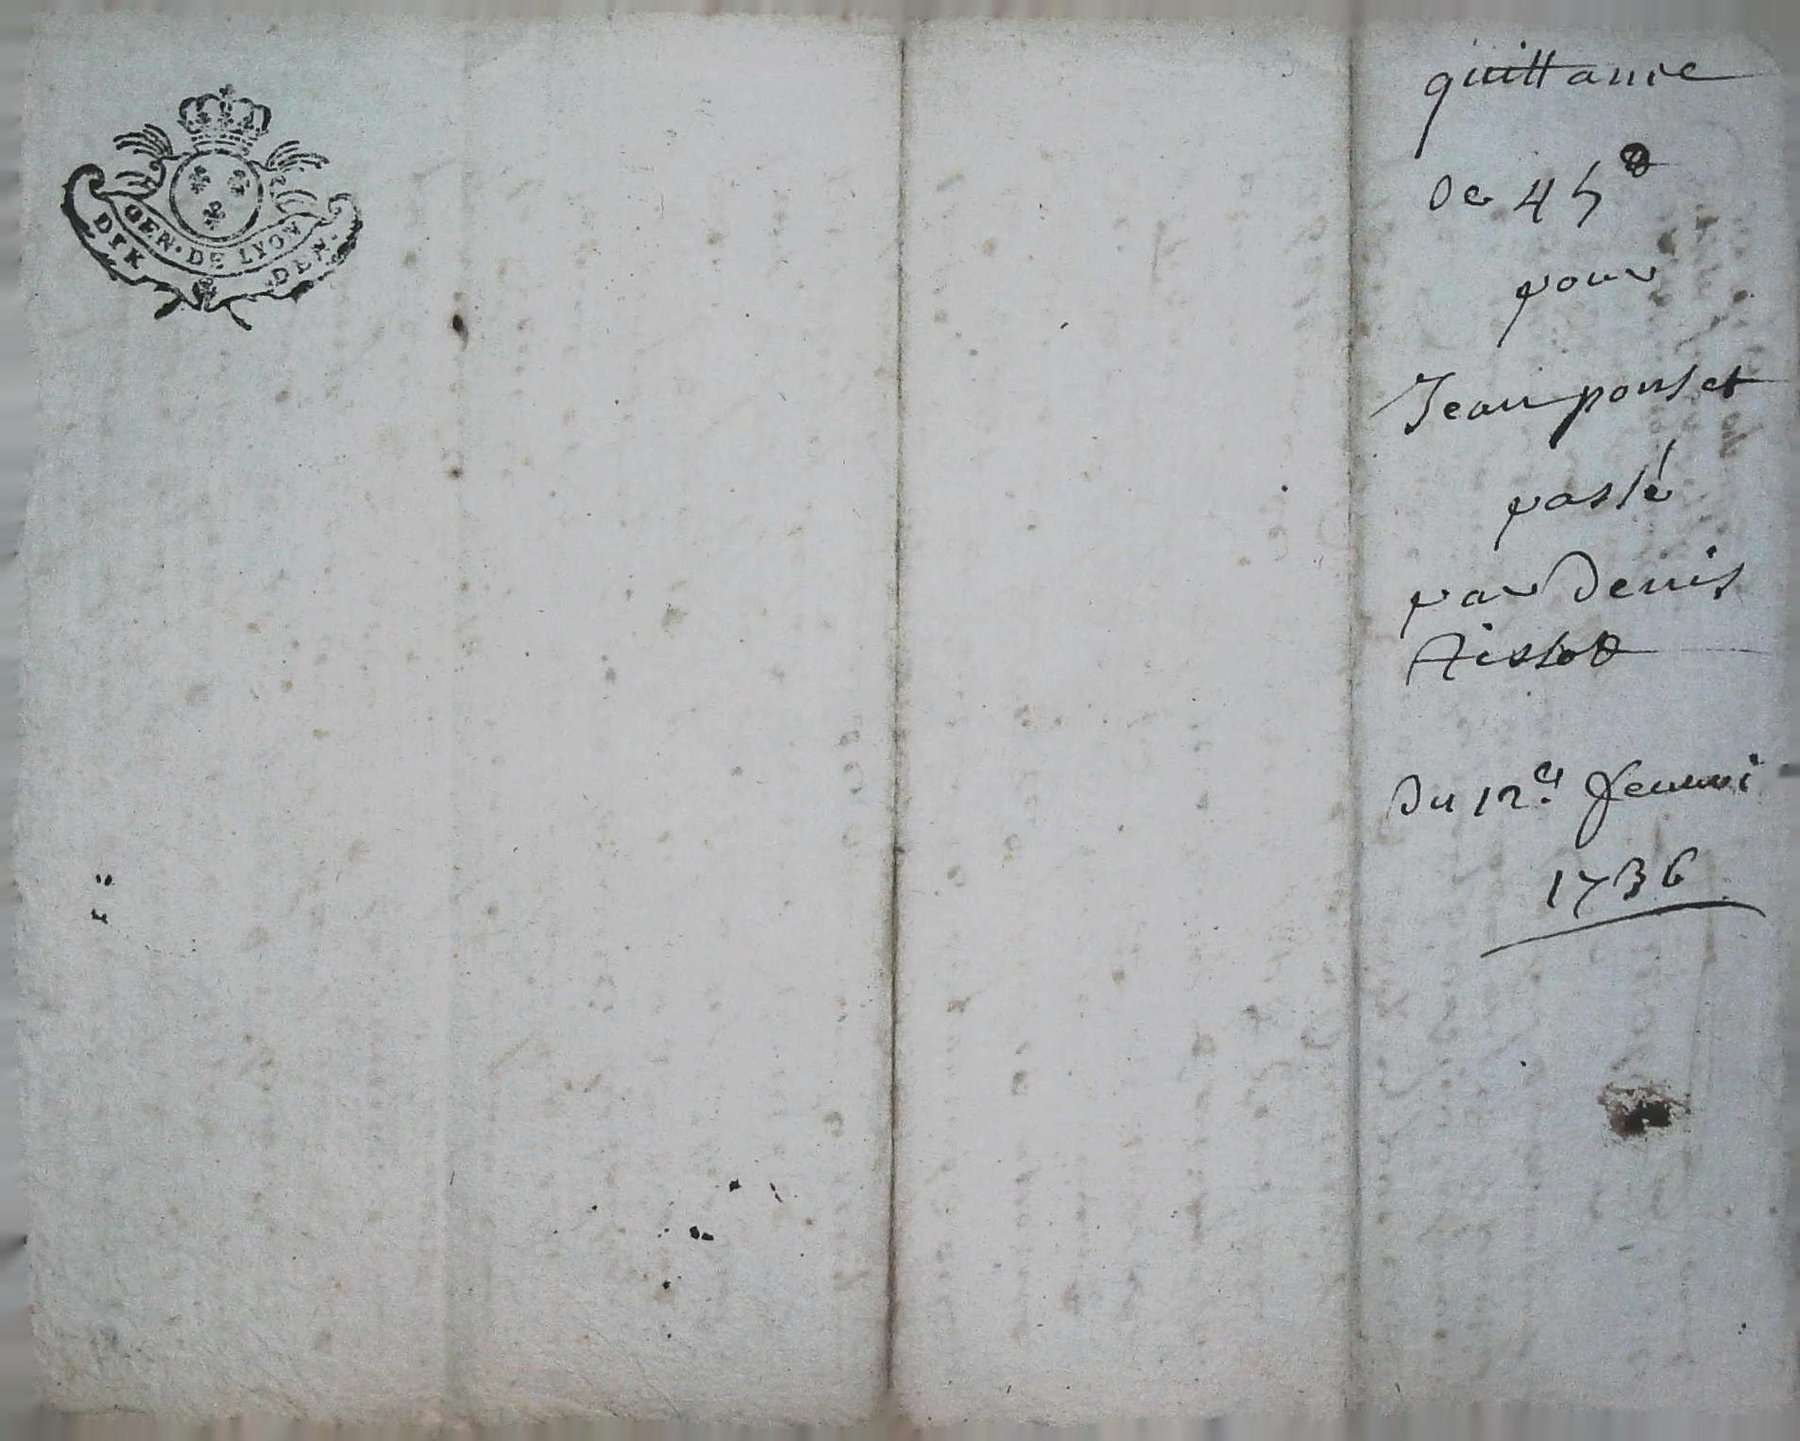 GEN · DE LYON
DIX DEN.
quittance
de 45#
pour
Jean ponset
passé
par Denis
Tissot
Du 12e
1736